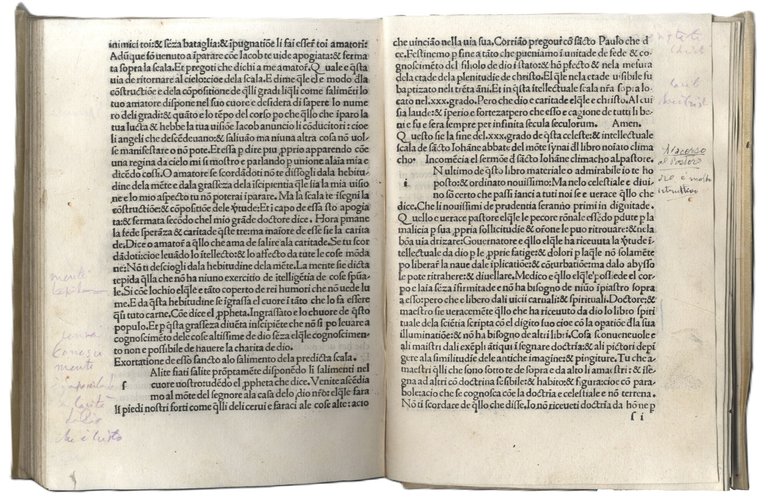 inimici toi:& sēza battaglia:& īpugnatiōe li fai esser̄ toi amatori:
Adūque so uenuto a īparare com Iacob te uide apogiata:& ferma
ta sopra la scala. Et pregoti che dichi a me amator̄. Quale e q̄sta
uia de ritornar̄ al cielo:cioe dela scala. Et dime q̄le e el modo dla
cōstructiōe e dela cōpositione de q̄lli gradi liq̄li come salimēti lo
tuo amatore dispone nel suo cuore e desidera di sapere lo numero
deli gradi:& quāto e lo tēpo del corso po che q̄llo che īparo la
tua lucta & hebbe la tua uisiōe Iacob anuncio li cōducitori:cioe
li angeli che descēdeuano:& saliuāo ma niuna altra cosa nō uol-
se manifestare o nō pote. Et essa p̄ dire piu ,pprio apparendo cōe
una regina da cielo mi si mostro e parlando p̄ unione alaia mia e
dicēdo cosi. O amatore se scordādoti nō te dissogli dala hebitu
dine dela mēte e dala grasseza dela īscipientia q̄lle sia la mia uisio
ne e lo mio aspecto tu nō poterai īparare. Ma la scala te īsegni la
cōstructiōe:& cōpositiōe dele v̄tude. Et ī capo de essa sto apogia
ta:& fermata secōdo chel mio grāde doctore dice. Hora pmane
la fede sperāza & caritade q̄ste tre:ma maiore de esse sie la carita
de. Dice o amator̄ a q̄llo che ama de salire ala caritade. Se tu scor
dādoti:cioe leuādo lo ītellecto:& lo affecto da tute le cose mōda
ne: Nō ti desciogli dala habitudine dela mēte. La mente sie dicta
tepida q̄lla che nō ha niuno exercitio de itelligētia de cose sp̄ua-
le. Si cōe lochio elq̄le e tato coperto de rei humori che nō uede lu
me. E da q̄sta hebitudine se igrassa el cuore ī tāto che lo fa essere
q̄si tuto carne. Cōe dice el .ppheta. Ingrassato e lo cbuore de q̄sto
populo. Et p̄ q̄sta grasseza diuēta inscipiēte che nō si po leuare a
cognoscimēto dele cose altissime de dio seza elq̄le cognoscimēto
non e possibile de hauere la charita de dio.
Exortatione de esso sancto alo salimento dela predicta scala.
Alite fiati salite prōptamēte disponēdo li salimenti nel
f cuore uostro:udēdo el .ppheta che dice. Venite ascēdia
mo al mōte del segnore ala casa delo dio nr̄o:elq̄le fara
li piedi nostri forti come q̄lli deli cerui e faraci ale cose alte:acio
che uinciāo nella uia sua. Corriāo pregoui:cō sācto Paulo che di
ce. Festinemo p̄fine a tāto che pueniamo ī unitade de fede & co-
gnoscimēto del filiolo de dio ī stato:& hō pfecto & nela mesura
dela etade dela plenitudie de christo. El q̄le nela etade uisibile fu
baptizato neli trēta āni. Et in q̄sta itellectuale scala nr̄a sopra lo
cato nel .xxx. grado. Pero che dio e caritade elq̄le e christo. Al cui
sia laude:& iperio e forteza:pero che esso e cagione de tutti li be-
ni:fu e sera semper per infinita secula seculorum. Amen.
Questo sie la fine del .xxx. grado de q̄sta celeste:& intellectuale
scala de sācto Iohāne abbate del mōte synai dl libro noiato clima
cho. Incomēcia el sermōe d̄ sancto Iohāne climacho al pastore.
N ultimo de q̄sto libro materiale o admirabile io te ho
i posto:& ordinato nouissimo: Ma nelo celestiale e diui-
no sō certo che passi ianci a tuti noi se e uerace q̄llo che
dice. Che li nouissimi de prudentia seranno primi in dignitade.
Quello e uerace pastore elq̄le le pecore rōnale essēdo pdute p la
malicia p sua .ppria sollicitudie & orōne le puo ritrouare:& nela
bōa uia drizare: Gouernatore e q̄llo elq̄le ha riceuuta la v̄tude ī-
telectuale da dio p le .pprie fatige:& dolori p laq̄le nō solamēte
po liberar̄ la naue dale īplicatiōe:& cōturbatiōe:ma dalo abysso
le pote ritrahere & diuellare. Medico e q̄llo elq̄le possede el cor-
po e laīa seza īfirmitade e nō ha bisogno de niuo ipiastro sopra
a esso:pero che e libero dali uicii carnali:& spirituali. Doctore:&
maestro sie ueracemēte q̄llo che ha riceuuto da dio lo libro spiri-
tuale dela sciētia scripta cō el digito suo cioe cō la opatiōe dla sua
illuminatiōe:& nō ha bisogno de altri libri. Cosa sconueneuole e
ali maestri dali exēpli altrui segnare doctria:& ali pictori depi-
gere ala similitudie dele antiche imagine:& pingiture. Tu che a-
maestri q̄lli che sono sotto te sopra e da alto li amaistri:& īse-
gna ad altri cō doctrina sēsibile:& habito:& figura:cioe cō para-
bole:acio che se cognosca cōe la doctria e celestiale e nō terrena.
Nō ti scordare de q̄llo che disse. Io nō riceueti doctria da hōne p
f i